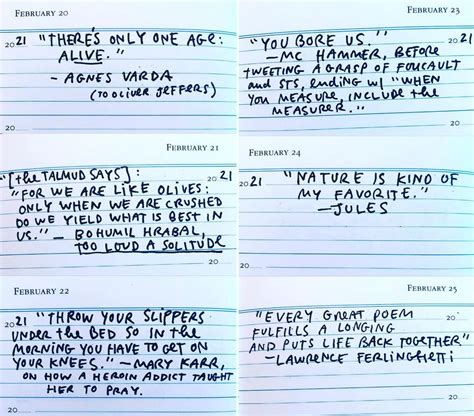 FEBRUARY 20
2021 "THERE'S ONLY ONE AGE:
ALIVE."
- AGNES VARDA
(TO OLIVER JEFFERS)
20
FEBRUARY 21
"[the TALMUD SAYS]: 2021
"FOR WE ARE LIKE OLIVES:
ONLY WHEN WE ARE CRUSHED
DO WE YIELD WHAT IS BEST IN
US." — BOHUMIL HRABAL,
TOO LOUD A SOLITUDE
20
FEBRUARY 22
2021 "THROW YOUR SLIPPERS
UNDER the BED SO IN the
MORNING YOU HAVE TO GET ON
YOUR KNEES." — MARY KARR,
ON HOW A HEROIN ADDICT TAUGHT
HER TO PRAY.
FEBRUARY 23
"YOU BORE US." 2021
— MC HAMMER, BEFORE
TWEETING A GRASP OF FOUCAULT
AND STS, ENDING W/ "WHEN
YOU MEASURE, INCLUDE the
MEASURER."
20
FEBRUARY 24
2021 "NATURE IS KIND OF
MY FAVORITE."
— JULES
20
FEBRUARY 25
"EVERY GREAT POEM
FULFILLS A LONGING
AND PUTS LIFE BACK TOGETHER"
— LAWRENCE FERLINGHETTI